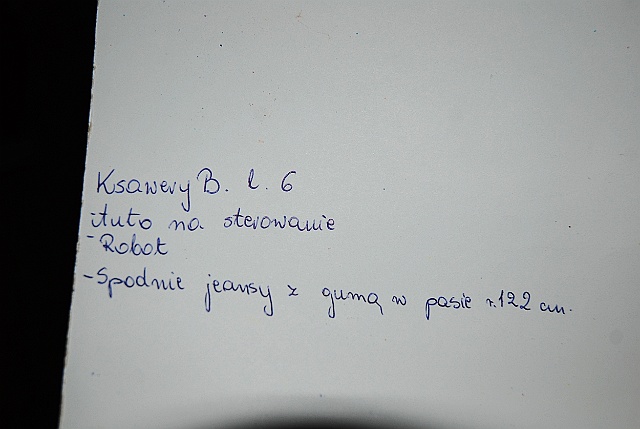 Ksawery B. l. 6
- Auto na sterowanie
- Robot
- Spodnie jeansy z gumą w pasie r. 122 cm.